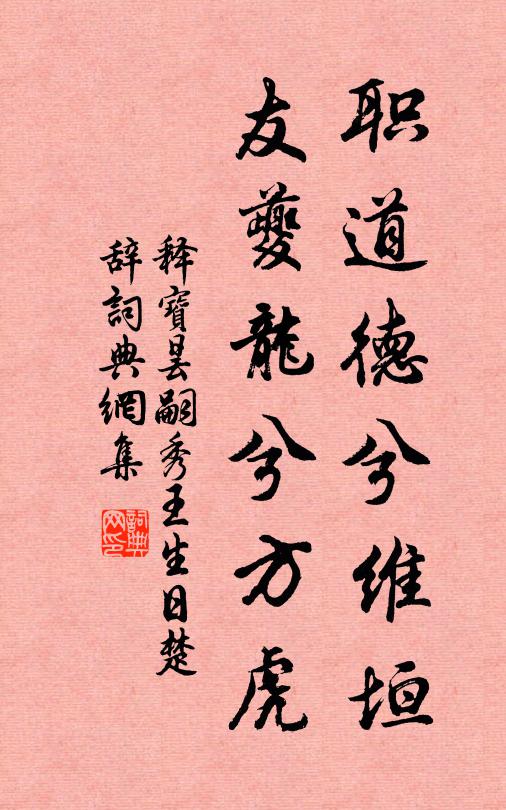 职道德兮维垣
友夔龍兮方虎
释寶昙嗣秀王生日楚
辞詞典網集
詞典网印